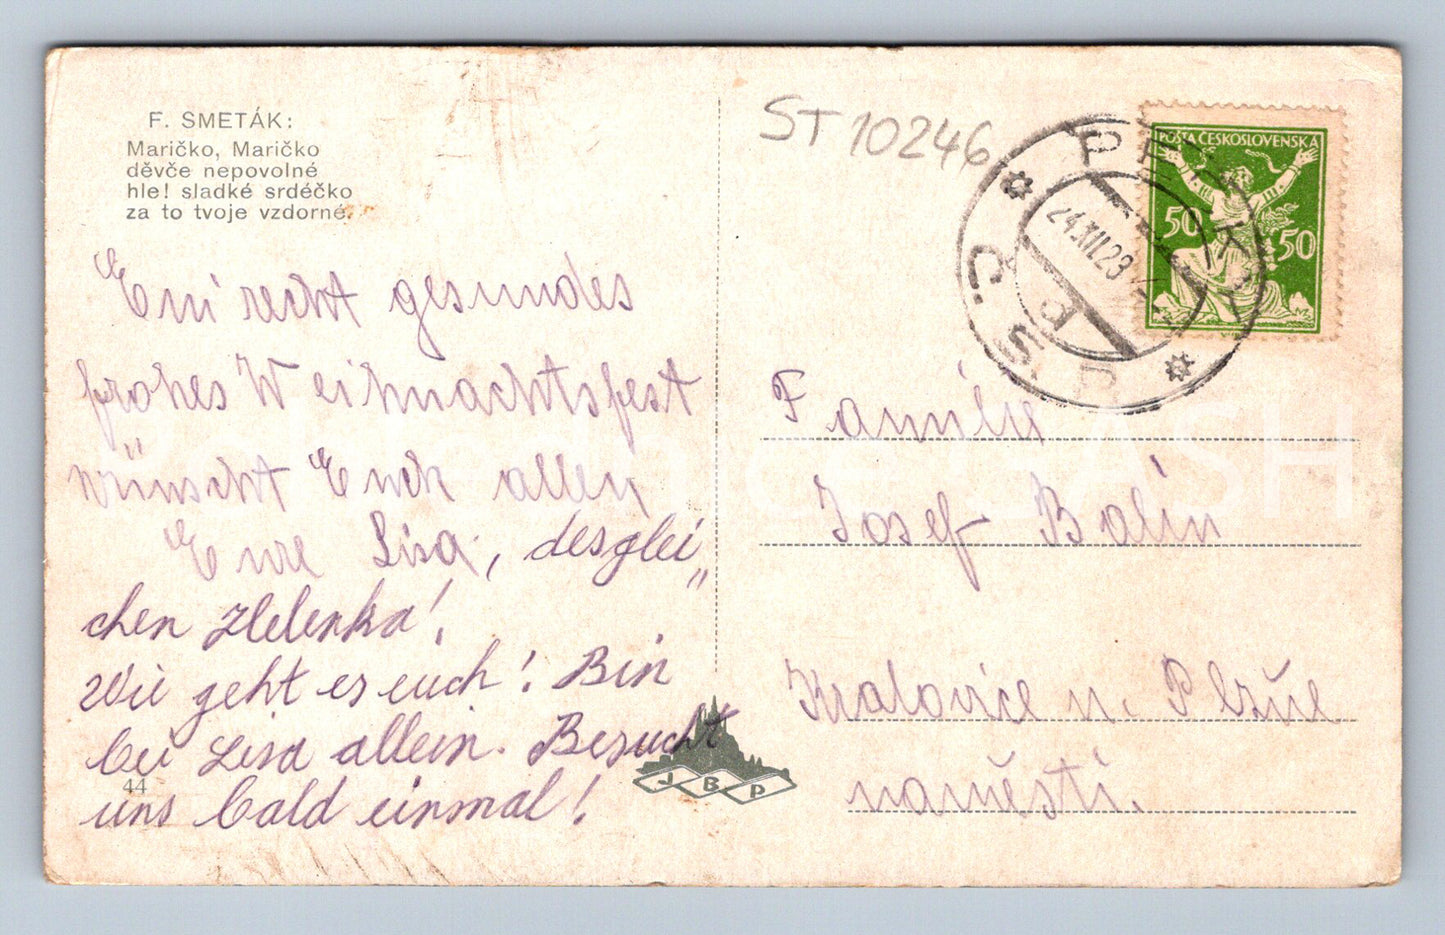 F. SMETÁK:
Maričko, Maričko
děvče nepovolné
hle! sladké srdéčko
za to tvoje vzdorné.
ST 10246
POŠTA ČESKOSLOVENSKÁ
50 50
24.XII.23
Č.S.P.
Ein recht gesundes
frohes Weihnachtsfest
wünscht Euch allen
Eure Lisa, desglei„
chen Helenka!
Wie geht es euch! Bin
bei Lisa allein. Besucht
uns bald einmal!
44
J B P
Familie
Josef Balín
Kralovice u. Plzně
naměstí.